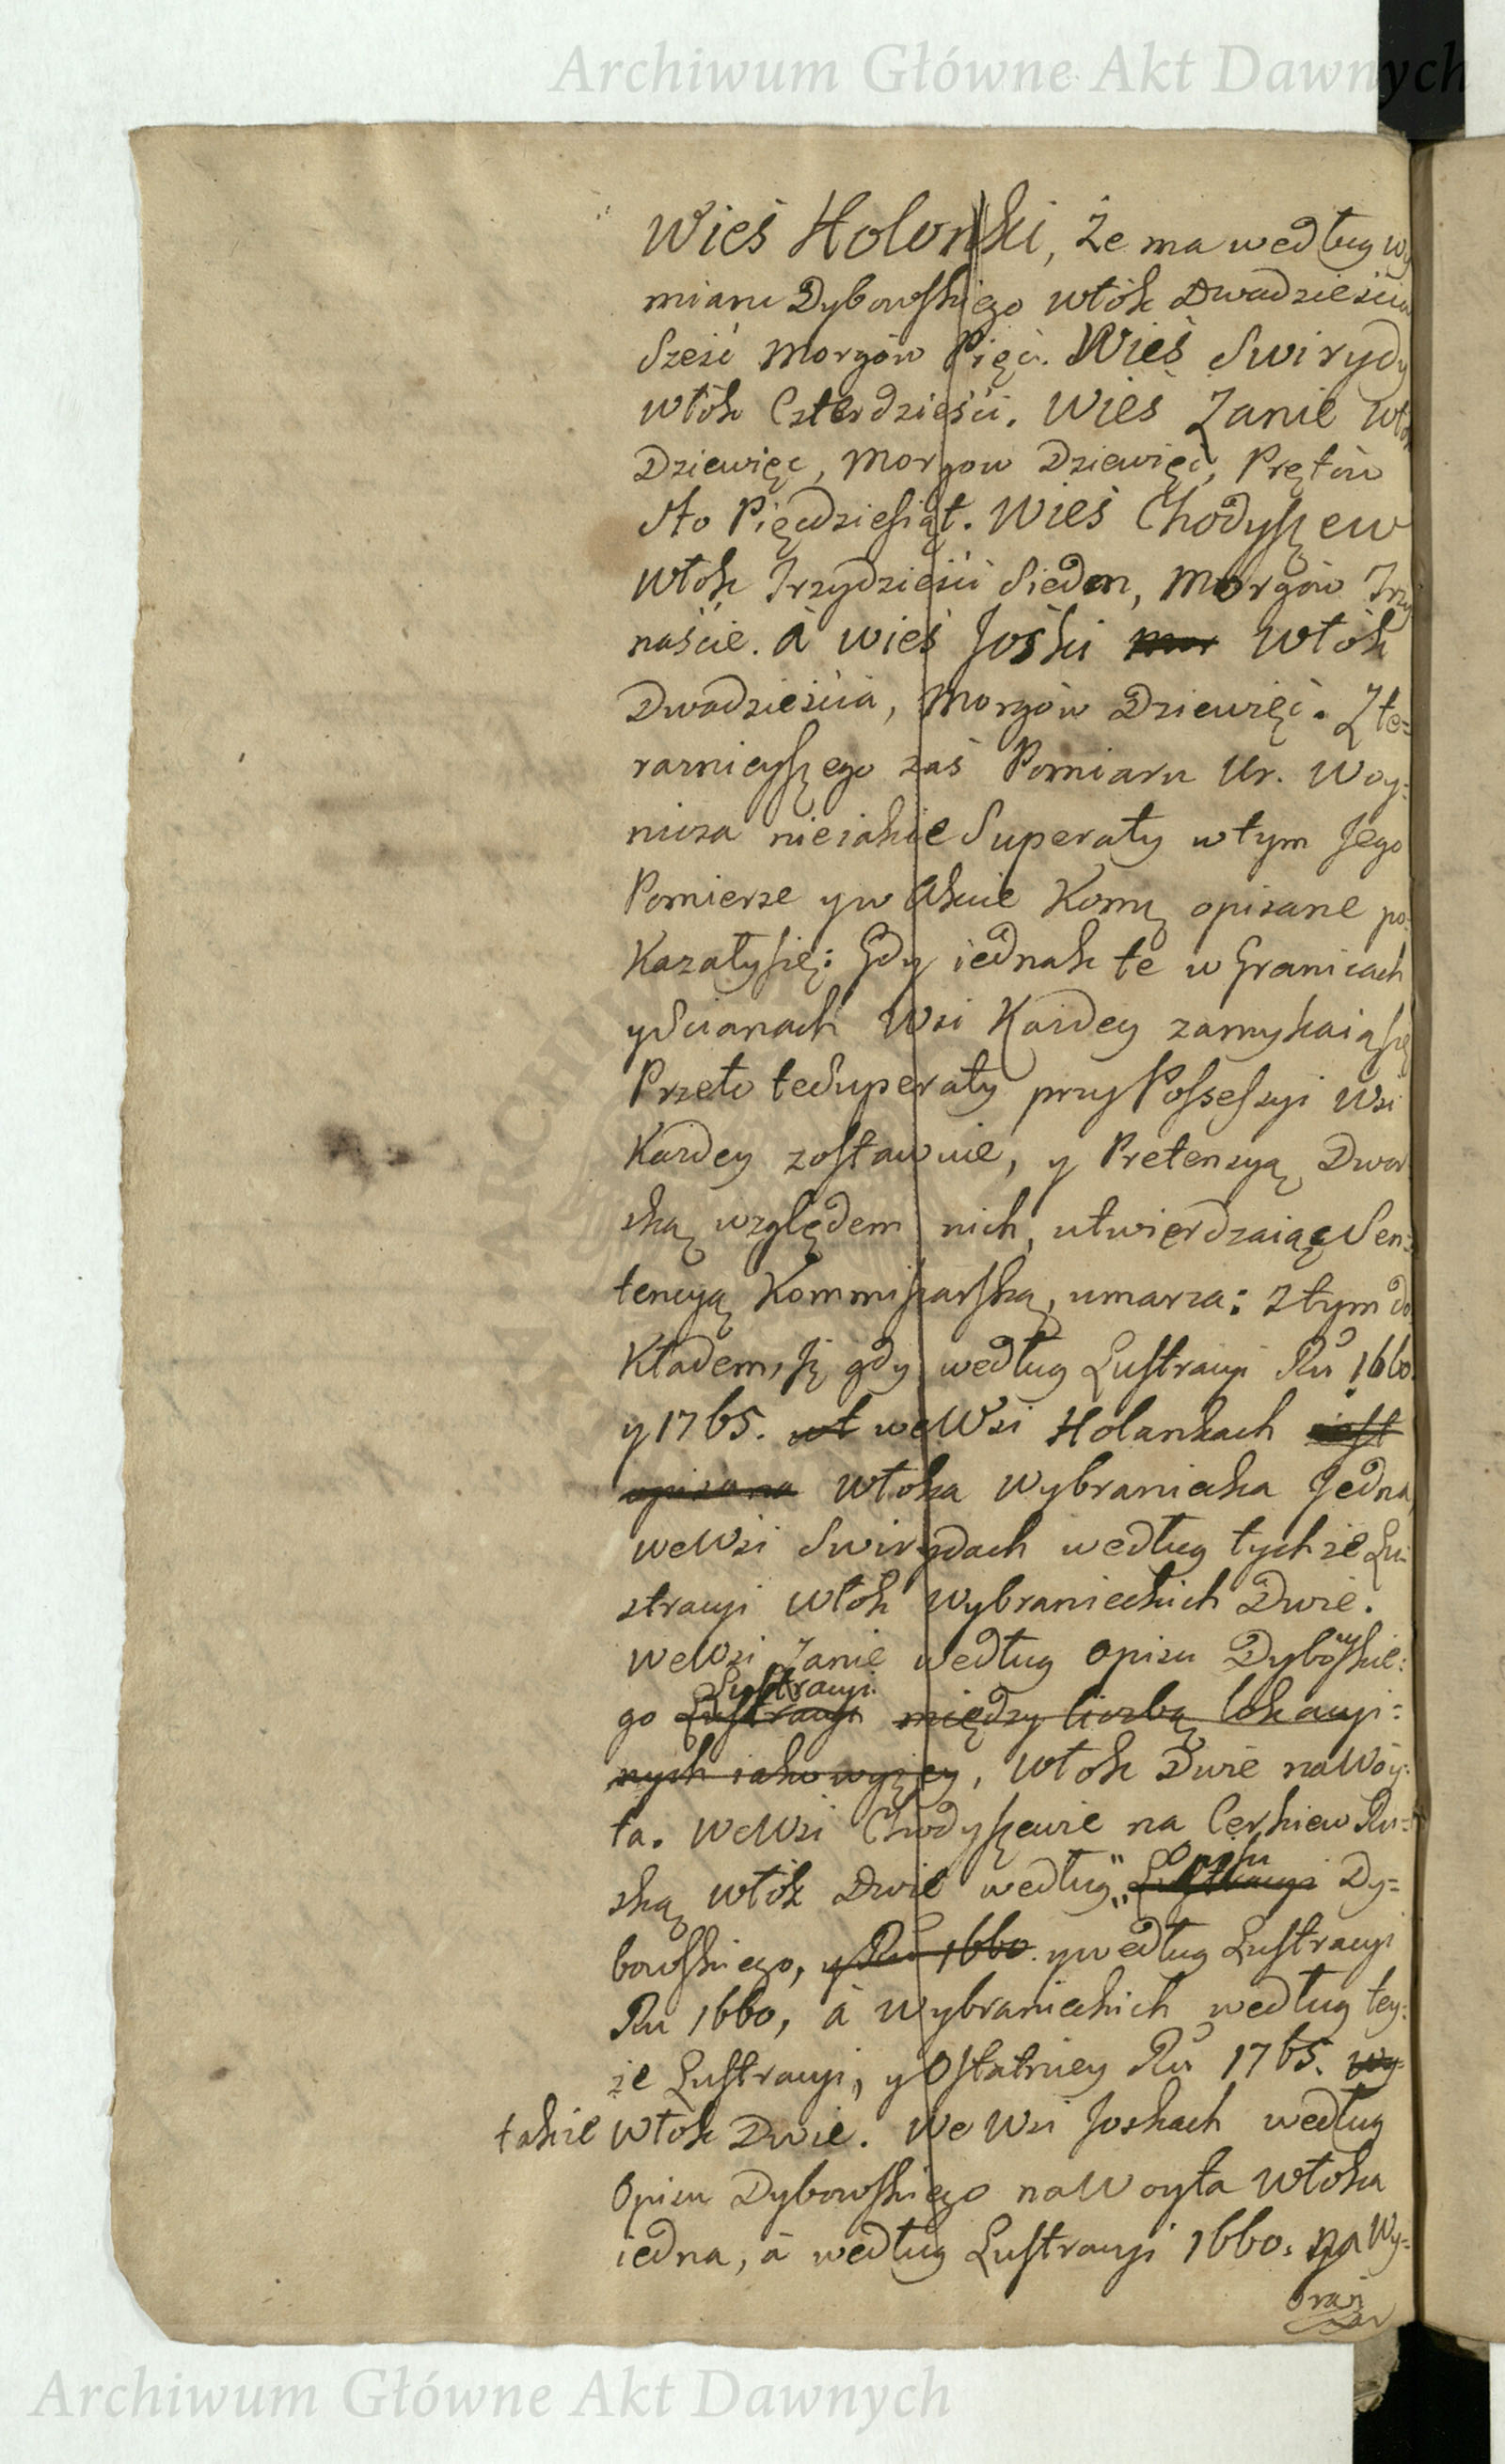 Archiwum Główne Akt Dawnych
Wieś Holonki, Że ma według wy
miaru Dybowskiego włók Dwadzieścia
Sześć Morgów Pięć. Wieś Swirydy
włók Czterdzieści. Wieś Zanie włók
Dziewięć, Morgow Dziewięć, Prętów
Sto Pięcdziesiąt. Wieś Chodyszew
Włók Trzydzieści Siedm, Morgów Trzy
naście. à wieś Jośki mor Włók
Dwadzieścia, Morgów Dziewięć. Z te=
raznieyszego zaś Pomiaru Ur. Woy:
nicza nieiakie Superaty w tym Jego
Pomierze y w Akcie Komy opisane po:
Kazały się: Gdy iednak te w Granicach
y Scianach Wsi Każdey zamykaią się
Przeto te Superaty przy Possessyi Wsi
Każdey zostawuie, y Pretensyą Dwor
ską względem nich, utwierdzaiąc Sen=
tencyą Kommissarską, umarza: z tym do
Kładem, Jż gdy według Lustracyi Ru 1660.
y 1765. wł we Wsi Holankach iest
opisana włoka Wybraniecka Jedna,
we Wsi Swirydach według tychże Lu
stracyi włók Wybranieckich Dwie.
we Wsi Zanie według Opisu Dybowskie:
Lustracyi
go Lustracyi między liczbą lokacyi:
nych iako wyżey, Włók Dwie na Wóy:
ta. We Wsi Chodyszewie na Cerkiew Ru=
Opisu
ską włók Dwie według Lustracyi Dy=
bowskiego, y Ru 1660. y według Lustracyi
Ru 1660, à Wybranieckich według tey:
że Lustracyi, y Ostatniey Ru 1765. wy=
także Włók Dwie. We Wsi Joskach według
Opisu Dybowskiego na Woyta Włoka
iedna, à według Lustracyi 1660. na Wy=
bran
Archiwum Główne Akt Dawnych